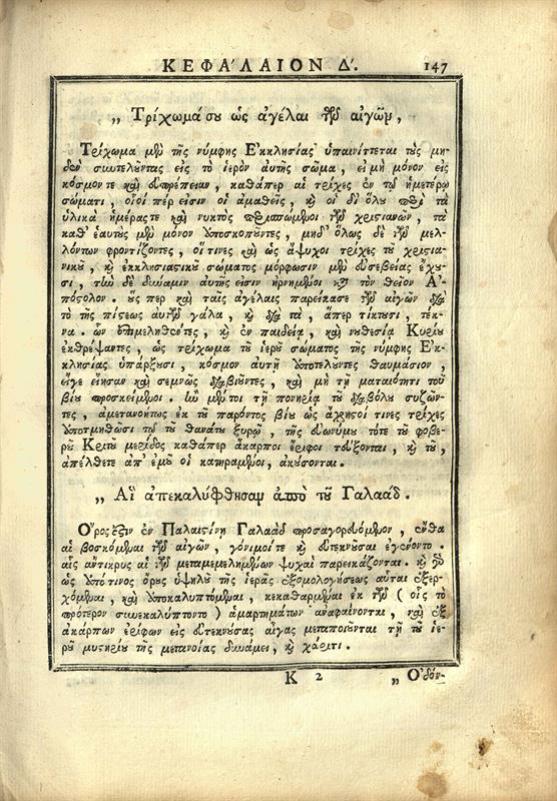 ΚΕΦΑ'ΛΑΙΟΝ Δ'. 147
„ Τρίχωμά σου ὡς ἀγέλαι τῶν αἰγῶν,
Τρίχωμα μὲν τῆς νύμφης Ἐκκλησίας ὑπαινίττεται τοὺς μη-
δὲν συντελοῦντας εἰς τὸ ἱερὸν αὐτῆς σῶμα, εἰ μὴ μόνον εἰς
κόσμον τε καὶ εὐπρέπειαν, καθάπερ αἱ τρίχες ἐν τῷ ἡμετέρῳ
σώματι, οἷοί πέρ εἰσιν οἱ ἀμαθεῖς, καὶ οἱ δι' ὅλου περὶ τὰ
ὑλικὰ ἡμέρας τε καὶ νυκτὸς περισπώμενοι τῶν χριστιανῶν, τὰ
καθ' ἑαυτοὺς μὲν μόνον ὑποσκοποῦντες, μηδ' ὅλως δὲ τῶν μελ-
λόντων φροντίζοντες, οἵ τινες καὶ ὡς ἄψυχοι τρίχες τοῦ χριστια-
νικοῦ, καὶ ἐκκλησιαστικοῦ σώματος μόρφωσιν μὲν εὐσεβείας ἔχου-
σι, τὴν δὲ δύναμιν αὐτῆς εἰσιν ἠρνημένοι κατὰ τὸν θεῖον Ἀ-
πόστολον. οὕς περ καὶ ταῖς ἀγέλαις παρείκασε τῶν αἰγῶν διὰ
τὸ τῆς πίστεως αὐτῶν γάλα, καὶ διὰ τὰ, ἅπερ τίκτουσι, τέκ-
να. ὧν ἐπιμεληθέντες, καὶ ἐν παιδείᾳ, καὶ νουθεσίᾳ Κυρίου
ἐκθρέψαντες, ὡς τρίχωμα τοῦ ἱεροῦ σώματος τῆς νύμφης Ἐκ-
κλησίας ὑπάρξουσι, κόσμον αὐτῇ ὑποτελοῦντες θαυμάσιον,
εἴγε εἴησαν καὶ σεμνῶς διαβιοῦντες, καὶ μὴ τῇ ματαιότητι τοῦ
βίου προσκείμενοι. ἂν μέντοι τῇ πονηρίᾳ τοῦ διαβόλου συζῶν-
τες, ἀμετανοήτως ἐκ τοῦ παρόντος βίου ὡς ἄχρηστοί τινες τρίχες
ὑποτμηθῶσι τῷ τοῦ θανάτου ξυρῷ, τῆς εὐωνύμου τότε τοῦ φοβε-
ροῦ Κριτοῦ μερίδος καθάπερ ἄκαρποι ἔριφοι τεύξονται, καὶ τοῦ,
ἀπέλθετε ἀπ' ἐμοῦ οἱ κατηραμένοι, ἀκούσονται.
„ Αἳ ἀπεκαλύφθησαν ἀπὸ τοῦ Γαλαάδ.
Ὄρος ἐστὶν ἐν Παλαιστίνῃ Γαλαὰδ προσαγορευόμενον, ἔνθα
αἱ βοσκόμεναι τῶν αἰγῶν, γόνιμοί τε καὶ εὔτεκνοῦσαι ἐγένοντο.
αἷς ἄντικρυς αἱ τῶν μεταμεμελημένων ψυχαὶ παρεικάζονται. καὶ γὰρ
ὡς ὑπό τινος ὄρους ὑψηλοῦ τῆς ἱερᾶς ἐξομολογήσεως αὗται ἐξερ-
χόμεναι, καὶ ὑποκαλυπτόμεναι, κεκαθαρμέναι ἐκ τῶν (οἷς τὸ
πρότερον συνεκαλύπτοντο) ἁμαρτημάτων ἀναφαίνονται, καὶ ἐξ
ἀκάρπων ἐρίφων εἰς εὐτεκνούσας αἶγας μεταποιοῦνται τῇ τοῦ ἱε-
ροῦ μυστηρίου τῆς μετανοίας δυνάμει, καὶ χάριτι.
Κ 2 „ Ὀδόν-